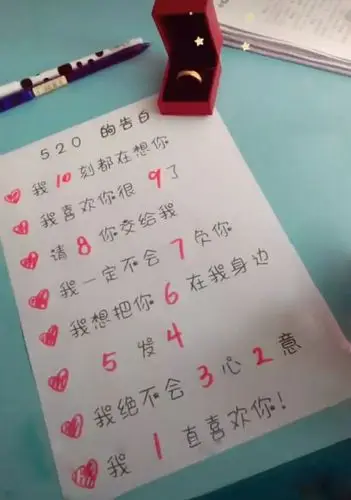 520 的告白
我10刻都在想你
我喜欢你很9了
请8你交给我
我一定不会7负你
我想把你6在我身边
5发4
我绝不会3心2意
我1直喜欢你!